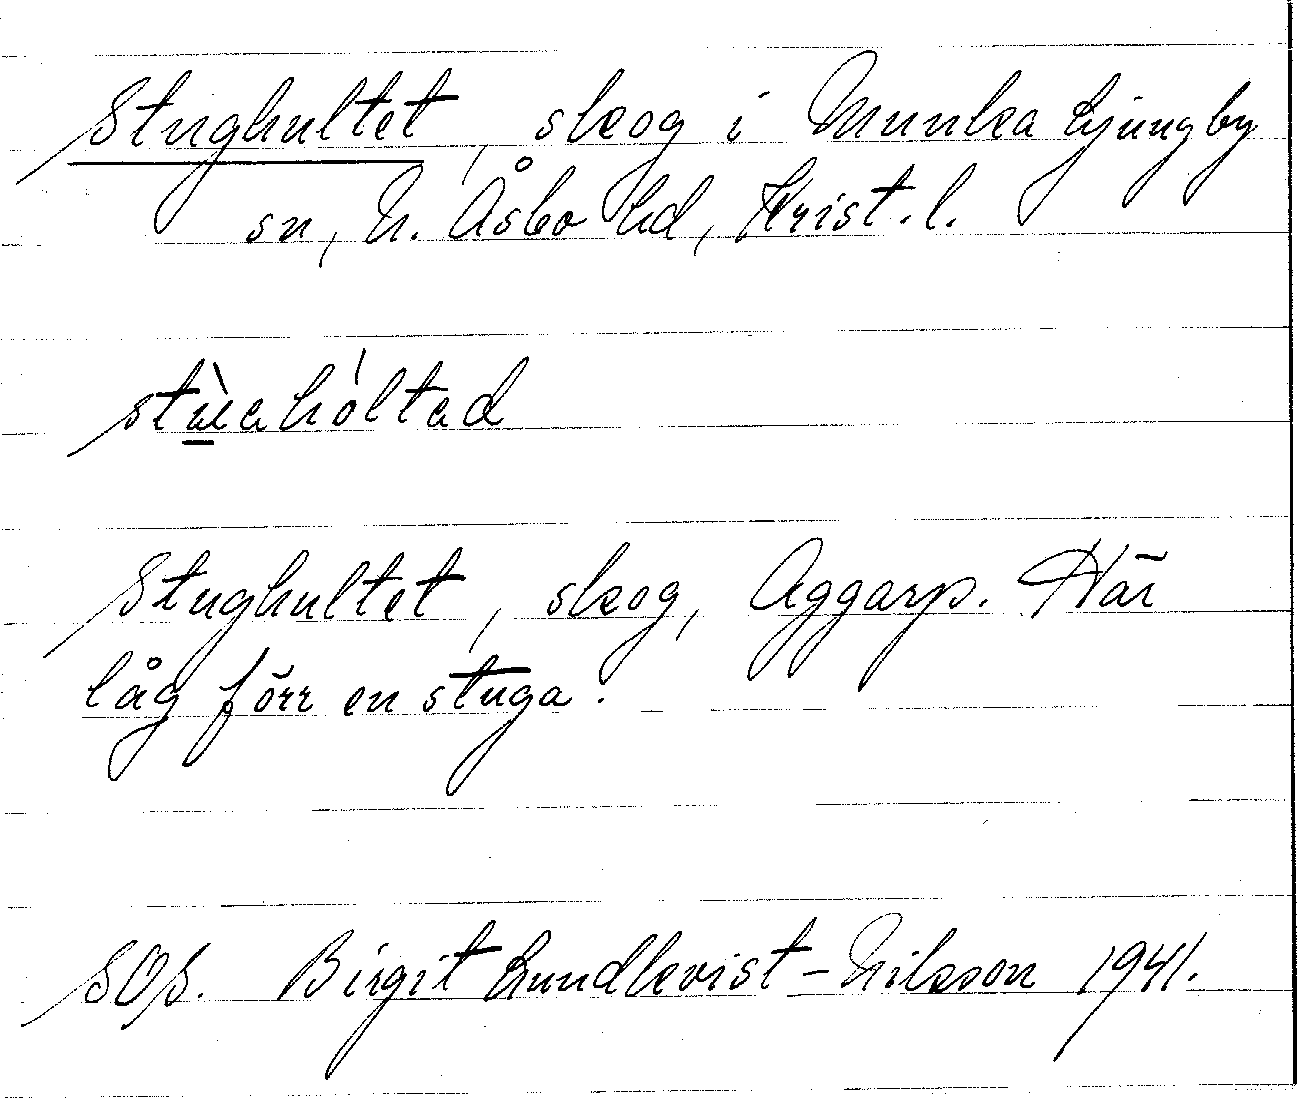 Stughultet, skog i Munka Ljungby
sn, N. Åsbo hd, Krist. l.
stùəhóltəd
Stughultet, skog, Aggarp. Här
låg förr en stuga.
SOS. Birgit Lundkvist-Nilsson 1941.